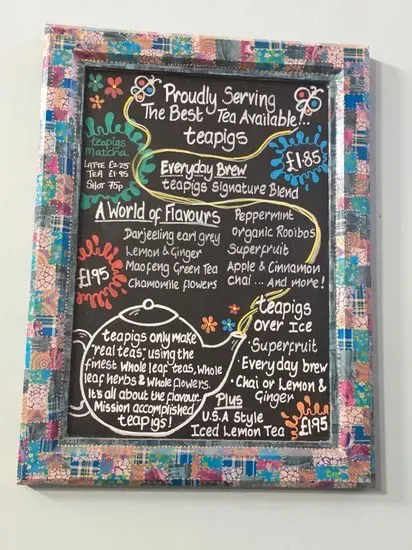 Proudly Serving
The Best Tea Available...
teapigs
teapigs
Matcha
LATTE £2.25
TEA £1.95
SHOT 75p
£1.85
Everyday Brew
teapigs Signature Blend
A World of Flavours
Darjeeling earl grey
Lemon & Ginger
Mao feng Green Tea
Chamomile flowers
Peppermint
Organic Rooibos
Superfruit
Apple & Cinnamon
Chai ... And more!
£1.95
teapigs only make
'real teas', using the
finest whole leaf teas, whole
leaf herbs & whole flowers.
It's all about the flavour.
Mission accomplished
teapigs!
teapigs
over Ice
· Superfruit
· Everyday brew
· Chai or Lemon &
Ginger
Plus
U.S.A Style
Iced Lemon Tea
£1.95